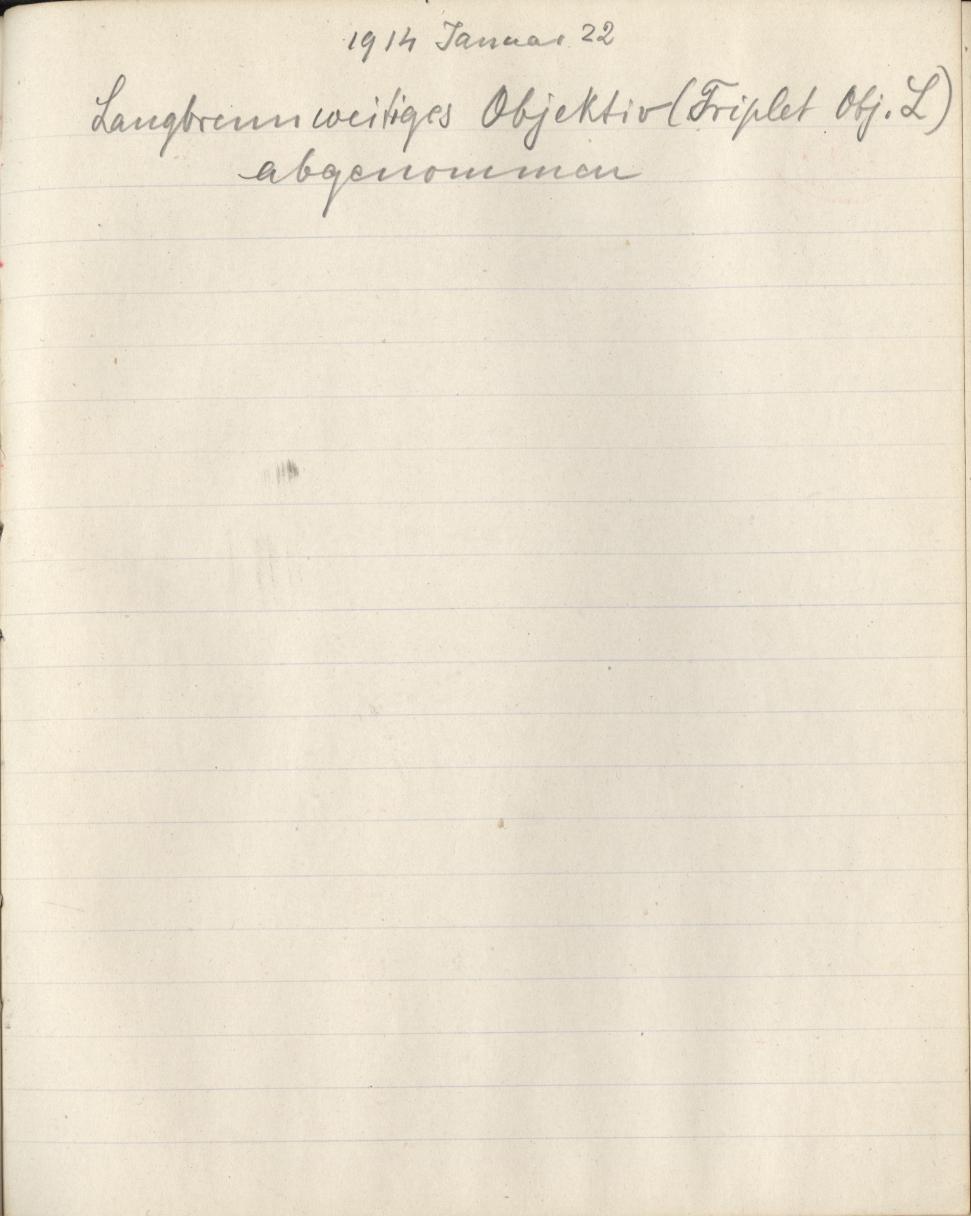 1914 Januar 22
Langbrennweitiges Objektiv (Triplet Obj. L)
abgenommen